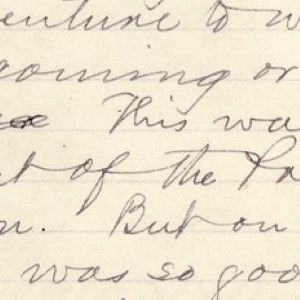 enture to w
oming or
This wa
t of the Pa
n. But on
was so goo